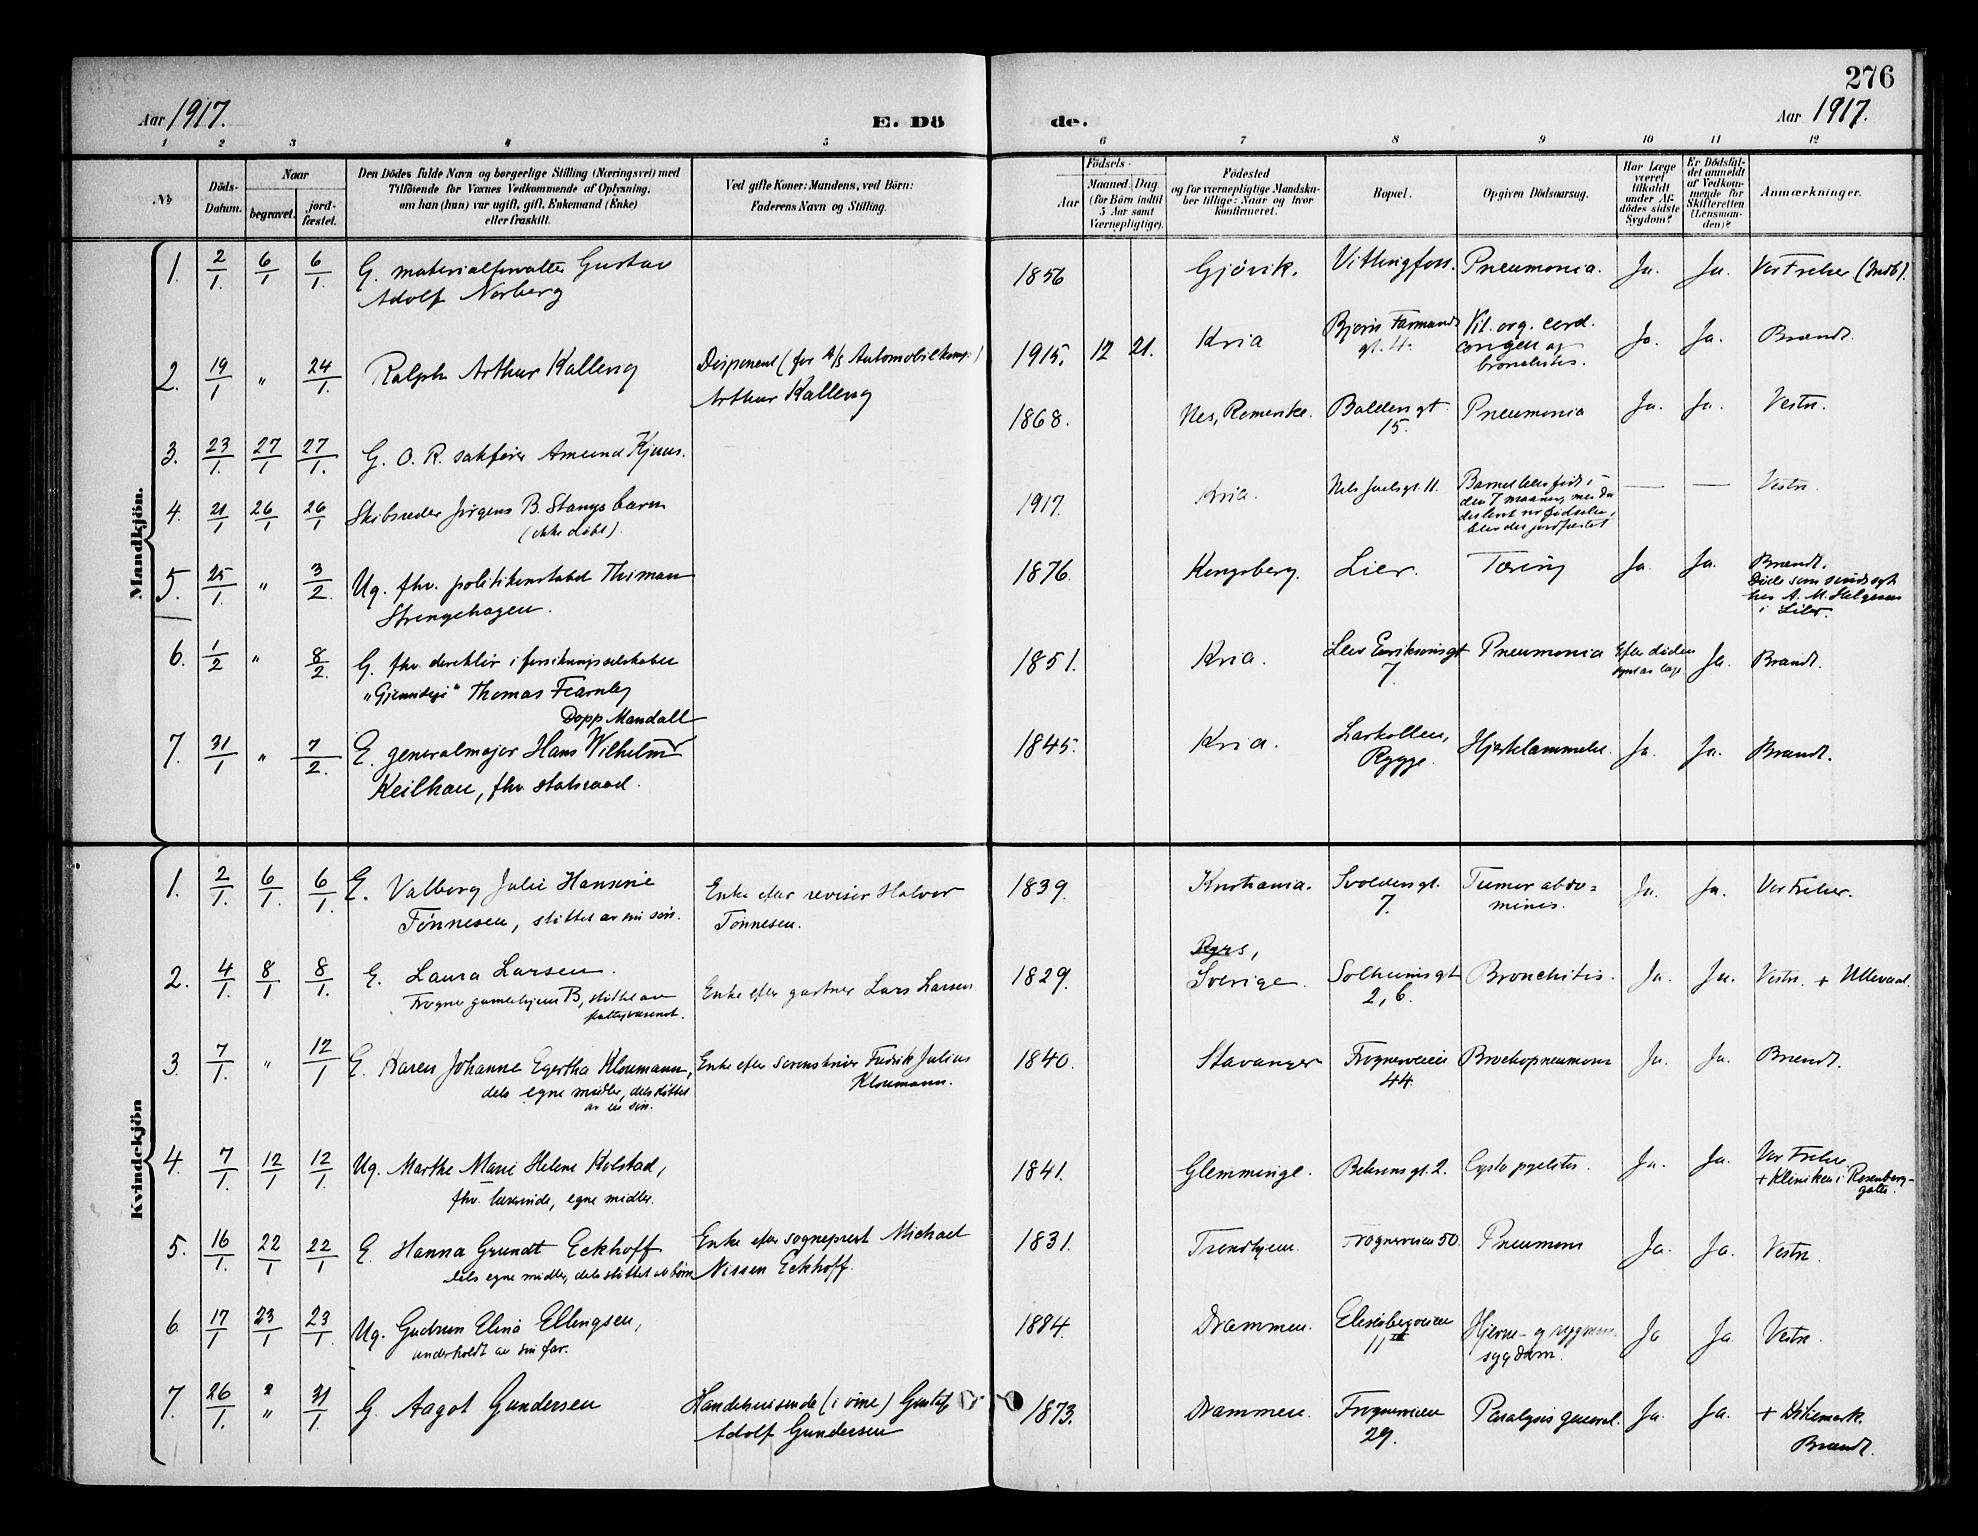 276
Aar 1917.
E. Dö
de.
Aar 1917.
1 2 3 4 5 6 7 8 9 10 11 12
No
Döds-
Datum.
Naar
begravet.
jord-
fæstet.
Den Dödes fulde Navn og borgerlige Stilling (Næringsvei) med
Tilföiende for Voxnes Vedkommende af Oplysning,
om han (hun) var ugift, gift, Enkemand (Enke)
eller fraskilt.
Ved gifte Koner: Mandens, ved Börn:
Faderens Navn og Stilling.
Födsels-
Aar
Maaned. Dag.
(for Börn indtil
5 Aar samt
Værnepligtige).
Födested
og for værnepligtige Mandska-
ber tillige: Naar og hvor
konfirmeret.
Bopæl.
Opgiven Dödsaarsag.
Har Læge
været
tilkaldt
under Af-
dödes sidste
Sygdom?
Er Dödsfal-
det anmeldt
af Vedkom-
mende for
Skifteretten
(Lensman-
den)?
Anmærkninger.
Mandkjön.
1. 2/1. 6/1 6/1. G. materialforvalter Gustav
Adolf Norberg
1856 Gjövik. Vittingfoss. Pneumonia. Ja. Ja. Vor Frelser
2. 19/1 " 24/1. Ralph Arthur Kallevig
Disponent (for A/S Automobilkomp.)
Arthur Kallevig
1915. 12 21. Kria Bjørn Farmands
gt. 4. Vit. org. cord.
congen og
bronchitis. Ja. Ja. Brændt.
3. 23/1. 27/1 27/1. G. O. R. sakfører Amund Kjuus.
1868. Nes, Romerike. Baldersgt.
15. Pneumonia Ja. Ja. Vestre.
4. 21/1 26/1 26/1 Skibsreder Jørgens B. Stangs barn
(ikke døbt).
1917. Kria. Nels Juelsgt. 11. Barnet blev født i
den 7 maaned, men da
det levet
blev det jordfæstet — — Vestre
5. 25/1. " 3/2 Ug. fhv. politikonstabel Thiman
Strengehagen.
1876. Kongsberg. Lier. Tæring Ja. Ja. Brændt.
Døde som sindssyg
hos A. M. Helgesen
i Lier.
6. 1/2 " 8/2. G. fhv. direktør i forsikringsselskabet
"Gjensidige" Thomas Fearnley
Dopp Mandall
1851. Kria. Leiv Eirikssønsgt
7 Pneumonia Efter døden
synet av læge. Ja. Brændt.
7. 31/1 " 7/2. E. generalmajor Hans Wilhelm
Keilhau, fhv. statsraad.
1845. Kria. Larkollen,
Rygge. Hjertelammelse. Ja. Ja. Brændt.
Kvindekjön
1. 2/1. 6/1. 6/1. E. Valborg Julie Hansine
Tønnesen, støttet av sin søn.
Enke efter revisor Halvor
Tønnesen.
1839. Kristiania. Svoldersgt.
7. Tumor abdo-
minis. Ja. Ja. Vor Frelser.
2. 4/1. 8/1 8/1. E. Laura Larsen.
Frogner gamlehjem B, støttet av
fattigvæsenet.
Enke efter gartner Lars Larsen
1829. Sverige. Solheimsgt
2, b. Bronchitis. Ja. Ja. Vestre. + Ullevaal.
3. 7/1. " 12/1 E. Karen Johanne Egertha Kloumann,
dels egne midler, dels støttet
av en søn.
Enke efter sorenskriver Fredrik Julius
Kloumann.
1840. Stavanger Frognerveien
44. Bronchopneumoni Ja. Ja. Brændt.
4. 7/1. 12/1 12/1. Ug. Marthe Marie Helene Kolstad,
fhv. lærerinde, egne midler.
1841. Glemminge. Behrensgt. 2. Cysto pyelitis. Ja. Ja. Vor Frelser.
+ Kliniken i Rosenborg-
gaten.
5. 16/1. 22/1 22/1 E. Hanna Grundt Eckhoff
dels egne midler, dels støttet av børn
Enke efter sogneprest Michael
Nissen Eckhoff.
1831. Trondhjem. Frognerveien 50. Pneumoni Ja. Ja. Vestre.
6. 17/1 23/1 23/1. Ug. Gudrun Elina Ellingsen,
underholdt av sin far.
1884. Drammen. Elisenbergveien
11 III Hjerne- og rygmarvs-
sygdom. Ja Ja. Vestre.
7. 26/1. " 31/1. G. Aagot Gundersen
Handelsreisende (i vine) Gustaf
Adolf Gundersen
1873. Drammen. Frognerveien
29. Paralysis general. Ja. Ja. + Dikemark.
Brændt.